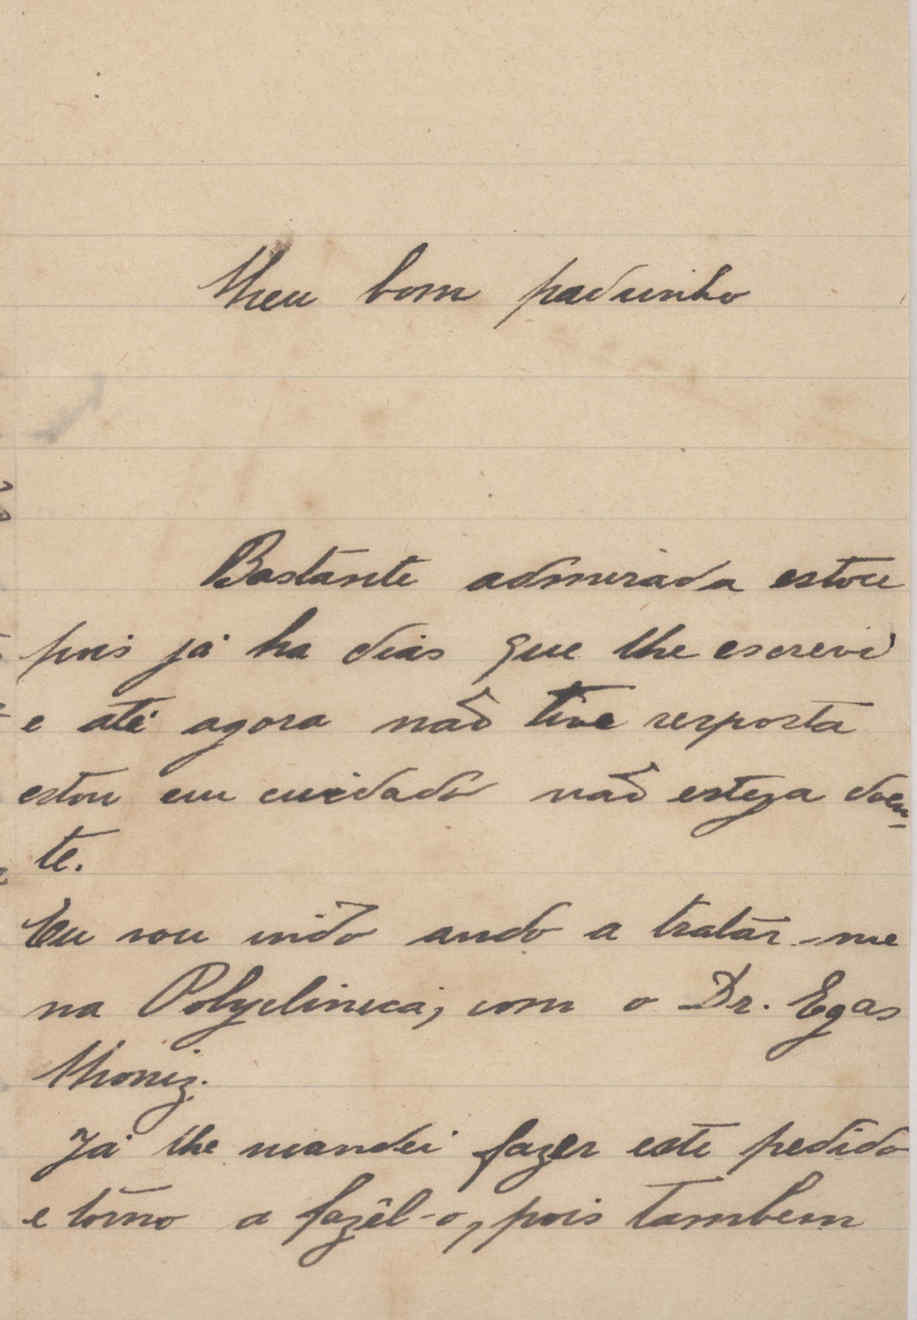 Meu bom padrinho
Bastante admirada estou
pois já ha dias que lhe escrevi
e até agora não tive resposta
estou em cuidado não esteja doen-
te.
Eu vou indo ando a tratar-me
na Polyclinica, com o Dr. Egas
Moniz.
Já lhe mandei fazer este pedido
e tórno a fazêl-o, pois tambem